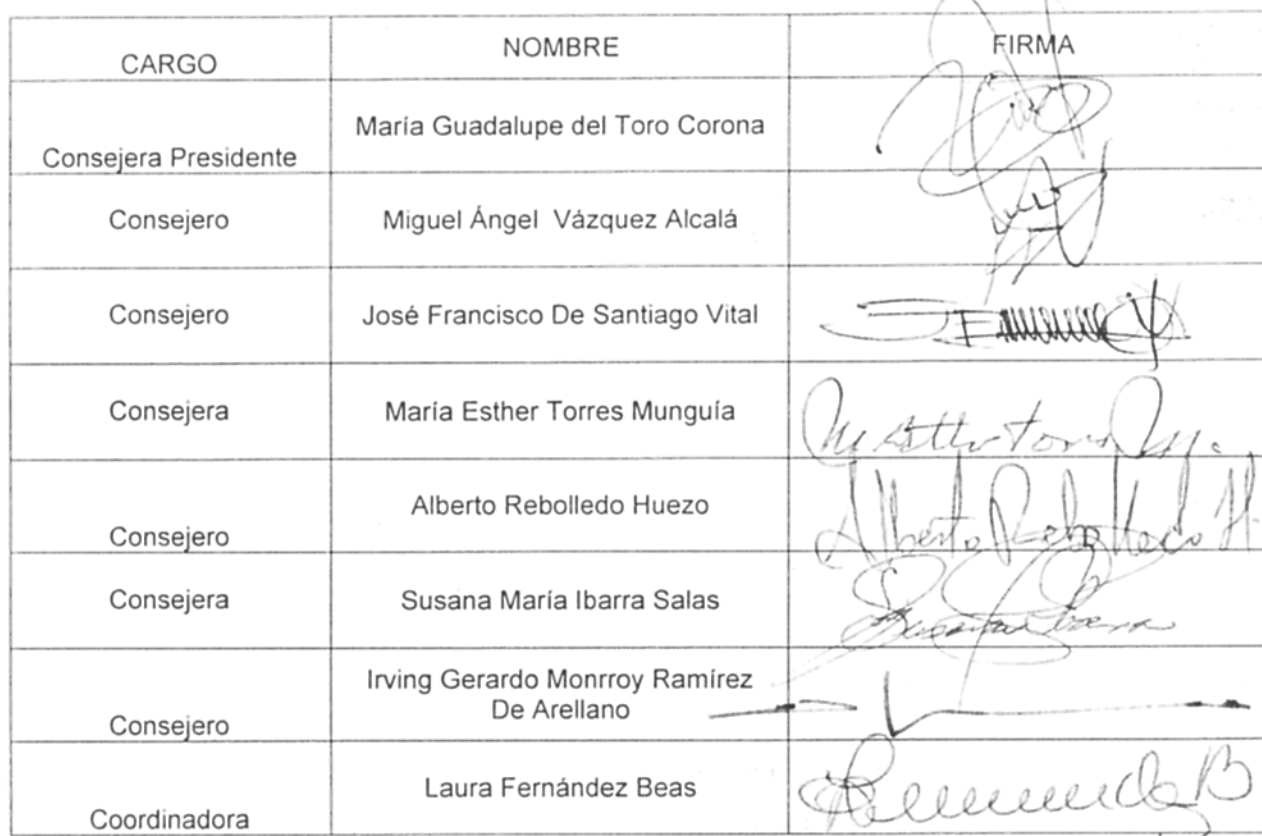 CARGO NOMBRE FIRMA
Consejera Presidente María Guadalupe del Toro Corona
Consejero Miguel Ángel Vázquez Alcalá
Consejero José Francisco De Santiago Vital
Consejera María Esther Torres Munguía M Esther Torres M.
Consejero Alberto Rebolledo Huezo Alberto Rebolledo H.
Consejera Susana María Ibarra Salas Susana Ibarra
Irving Gerardo Monrroy Ramírez
Consejero De Arellano
Coordinadora Laura Fernández Beas